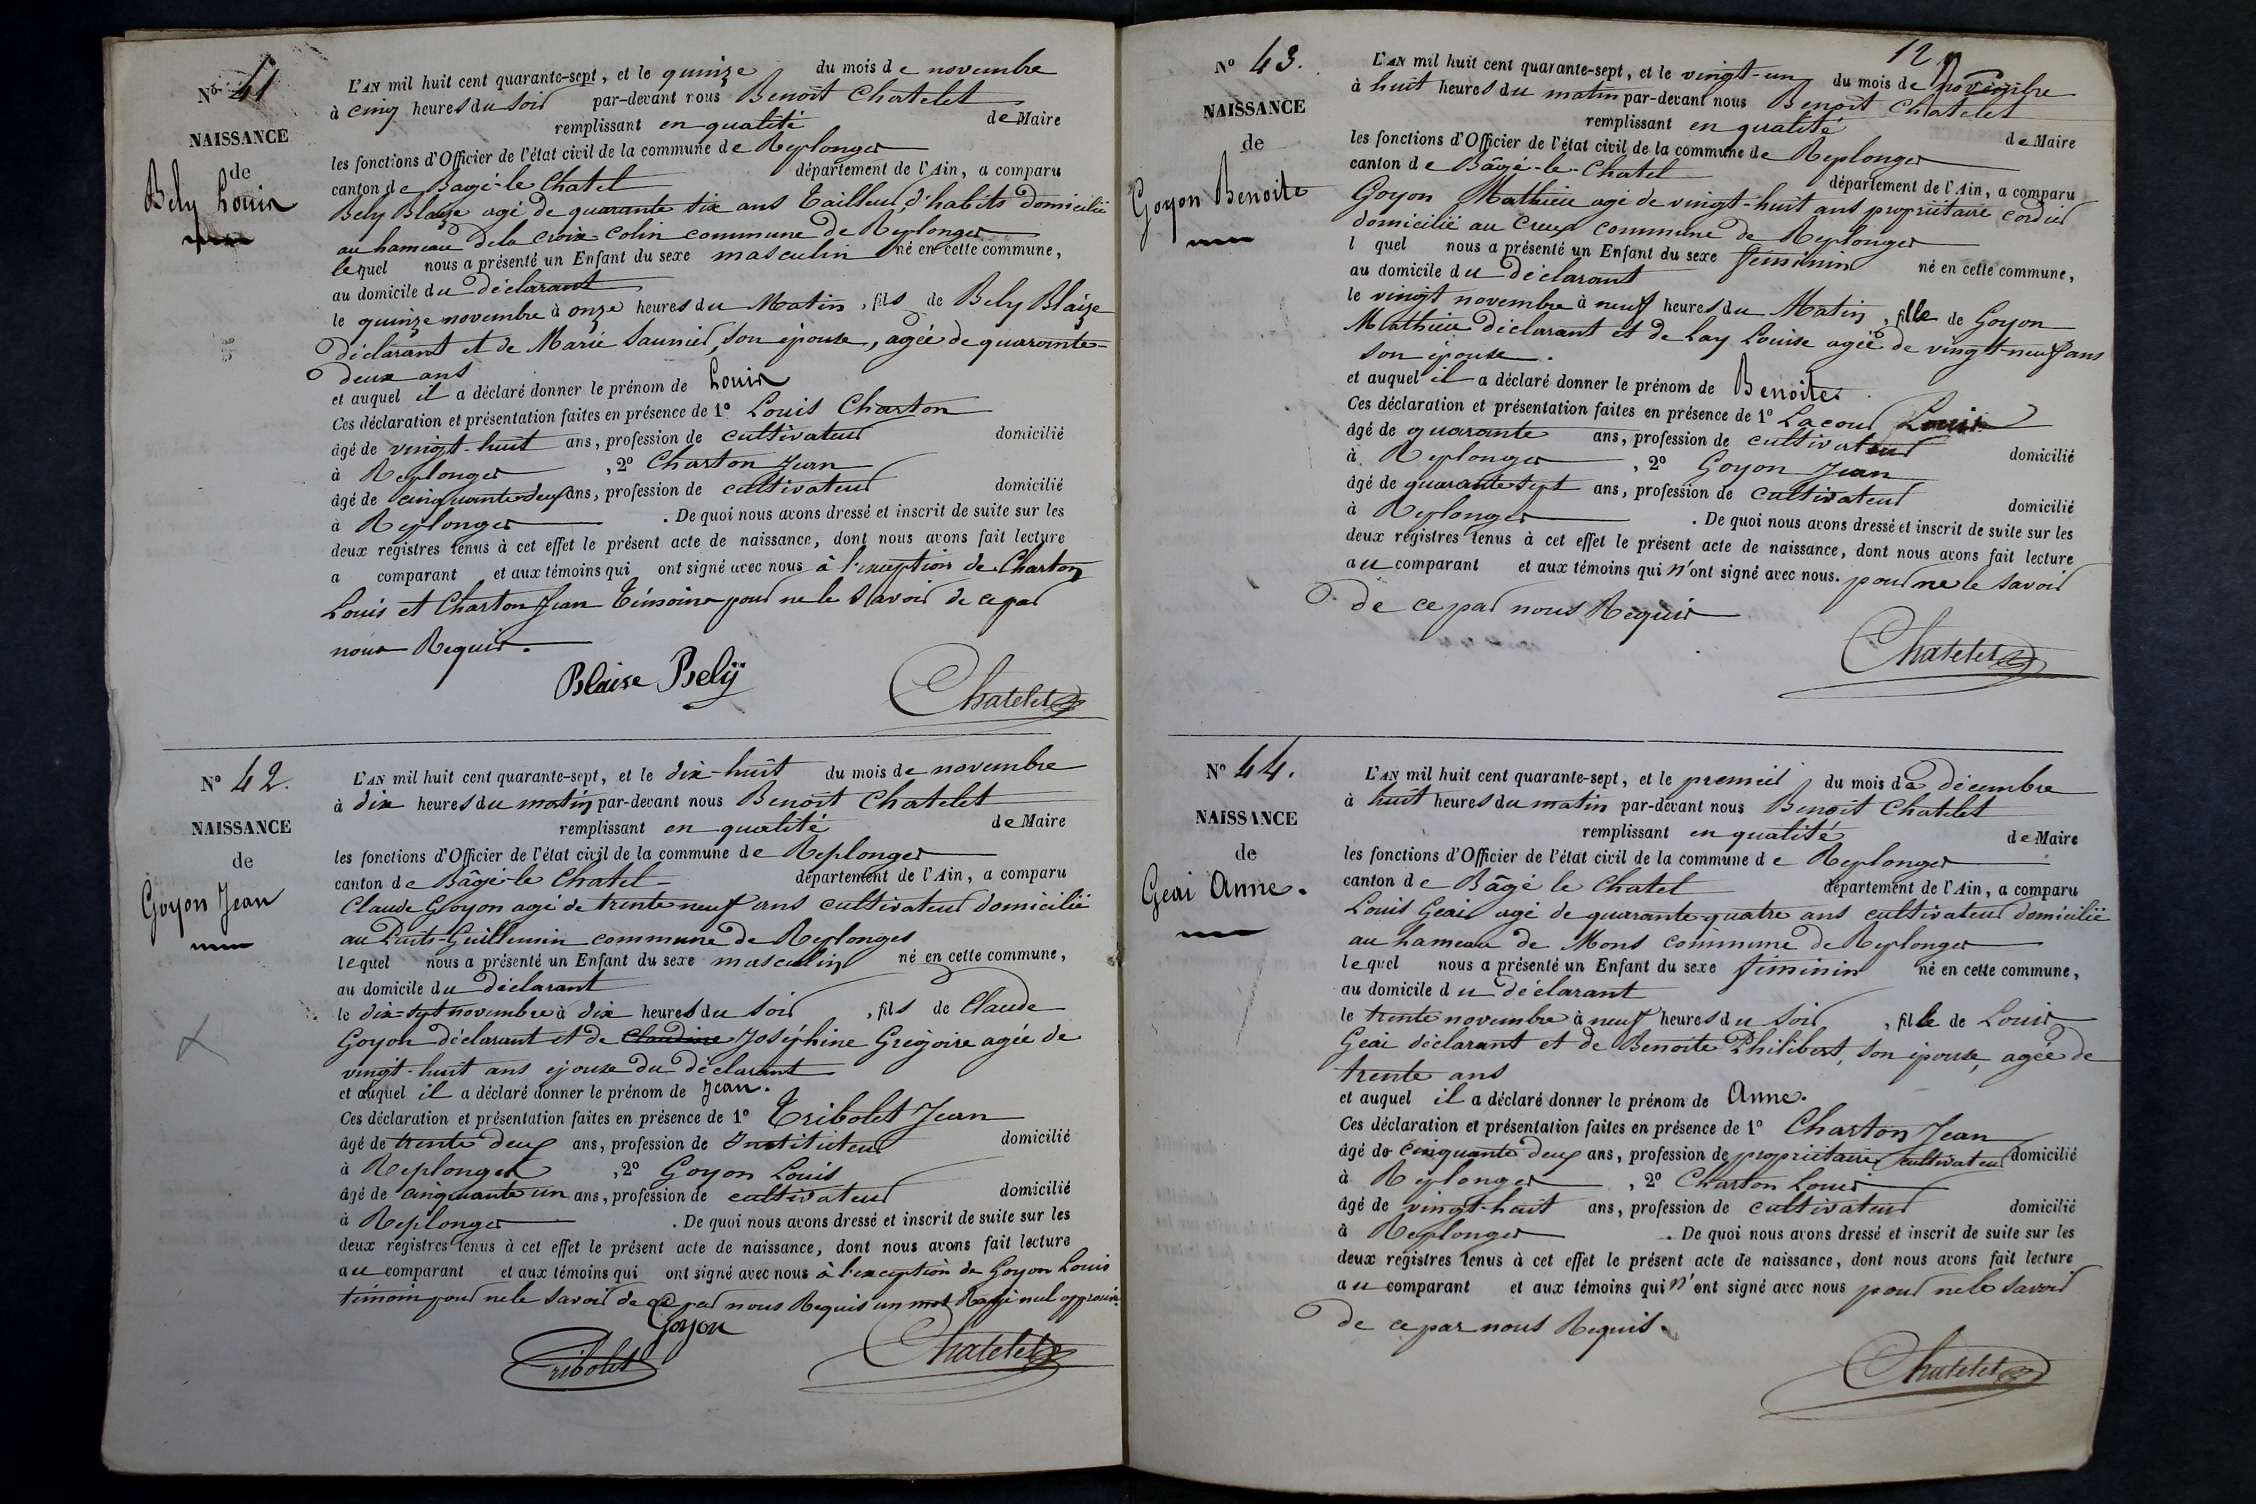 Nº 41
NAISSANCE
de
Bely Louis
L'AN mil huit cent quarante-sept, et le quinze du mois de novembre
à cinq heures du soir par-devant nous Benoît Chatelet
remplissant en qualité de Maire
les fonctions d'Officier de l'état civil de la commune de Replonges
canton de Bagé-le Chatel département de l'Ain, a comparu
Bely Blaize agé de quarante six ans Tailleur d'habits domicilié
au hameau de la croix colin commune de Replonges
lequel nous a présenté un Enfant du sexe masculin né en cette commune,
au domicile du déclarant
le quinze novembre à onze heures du Matin, fils de Bely Blaize
déclarant et de Marie Saunier, son épouse, agée de quarante-
deux ans
et auquel il a déclaré donner le prénom de Louis
Ces déclaration et présentation faites en présence de 1º Louis Charton
âgé de vingt-huit ans, profession de cultivateur domicilié
à Replonges, 2º Charton Jean
âgé de cinquante deux ans, profession de cultivateur domicilié
à Replonges. De quoi nous avons dressé et inscrit de suite sur les
deux registres tenus à cet effet le présent acte de naissance, dont nous avons fait lecture
a comparant et aux témoins qui ont signé avec nous à l'exception de Charton
Louis et Charton Jean Témoins pour ne le Savoir de ce par
nous Requis.
Blaise Bely
Chatelet
Nº 42.
NAISSANCE
de
Goyon Jean
L'AN mil huit cent quarante-sept, et le dix-huit du mois de novembre
à dix heures du matin par-devant nous Benoît Chatelet
remplissant en qualité de Maire
les fonctions d'Officier de l'état civil de la commune de Replonges
canton de Bâgé-le Chatel département de l'Ain, a comparu
Claude Goyon agé de trente neuf ans cultivateur domicilié
au Puits-Guillemin commune de Replonges
lequel nous a présenté un Enfant du sexe masculin né en cette commune,
au domicile du déclarant
le dix-sept novembre à dix heures du soir, fils de Claude
Goyon déclarant et de Claudine Joséphine Grégoire agée de
vingt-huit ans épouse du déclarant
et auquel il a déclaré donner le prénom de Jean.
Ces déclaration et présentation faites en présence de 1º Tribolet Jean
âgé de trente deux ans, profession de Instituteur domicilié
à Replonges, 2º Goyon Louis
âgé de cinquante un ans, profession de cultivateur domicilié
à Replonges. De quoi nous avons dressé et inscrit de suite sur les
deux registres tenus à cet effet le présent acte de naissance, dont nous avons fait lecture
au comparant et aux témoins qui ont signé avec nous à l'exception de Goyon Louis
témoin pour ne le Savoir de ce par nous Requis un mot Rayé nul approuvé.
Goyon
Tribolet
Chatelet
12
Nº 43.
NAISSANCE
de
Goyon Benoite
L'AN mil huit cent quarante-sept, et le vingt-un du mois de novembre
à huit heures du matin par-devant nous Benoît Chatelet
remplissant en qualité de Maire
les fonctions d'Officier de l'état civil de la commune de Replonges
canton de Bâgé-le-Chatel département de l'Ain, a comparu
Goyon Mathieu agé de vingt-huit ans propriétaire cordier
domicilié au Creux commune de Replonges
l quel nous a présenté un Enfant du sexe féminin né en cette commune,
au domicile du déclarant
le vingt novembre à neuf heures du Matin, fille de Goyon
Mathieu déclarant et de Lay Louise agée de vingt-neuf ans
son épouse.
et auquel il a déclaré donner le prénom de Benoite.
Ces déclaration et présentation faites en présence de 1º Lacour Louis
âgé de quarante ans, profession de cultivateur domicilié
à Replonges, 2º Goyon Jean
âgé de quarante sept ans, profession de cultivateur domicilié
à Replonges. De quoi nous avons dressé et inscrit de suite sur les
deux registres tenus à cet effet le présent acte de naissance, dont nous avons fait lecture
au comparant et aux témoins qui n'ont signé avec nous. pour ne le savoir
de ce par nous Requis
Chatelet
Nº 44.
NAISSANCE
de
Geai Anne.
L'AN mil huit cent quarante-sept, et le premier du mois de décembre
à huit heures du matin par-devant nous Benoît Chatelet
remplissant en qualité de Maire
les fonctions d'Officier de l'état civil de la commune de Replonges
canton de Bâgé le Chatel département de l'Ain, a comparu
Louis Geai agé de quarante-quatre ans cultivateur domicilié
au hameau de Mons commune de Replonges
lequel nous a présenté un Enfant du sexe féminin né en cette commune,
au domicile du déclarant
le trente novembre à neuf heures du soir, fille de Louis
Geai déclarant et de Benoite Philibert, son épouse, agée de
trente ans
et auquel il a déclaré donner le prénom de Anne.
Ces déclaration et présentation faites en présence de 1º Charton Jean
âgé de cinquante deux ans, profession de propriétaire cultivateur domicilié
à Replonges, 2º Charton Louis
âgé de vingt-huit ans, profession de cultivateur domicilié
à Replonges. De quoi nous avons dressé et inscrit de suite sur les
deux registres tenus à cet effet le présent acte de naissance, dont nous avons fait lecture
au comparant et aux témoins qui n'ont signé avec nous pour ne le savoir
de ce par nous Requis.
Chatelet